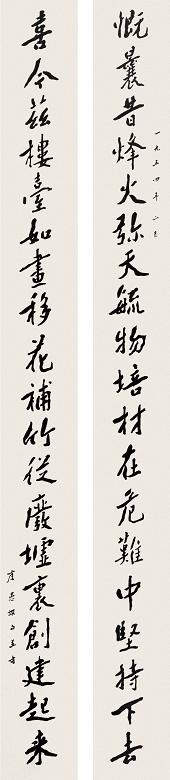 慨曩昔烽火弥天毓物培材在危難中堅持下去
一九五四年二月
喜今茲樓臺如畫移花補竹從廢墟裏創建起来